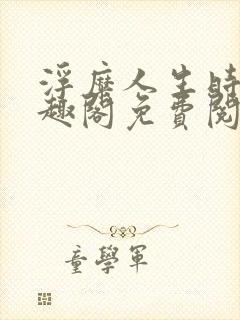 浮靡人生時
趣閣免費閱
童學軍